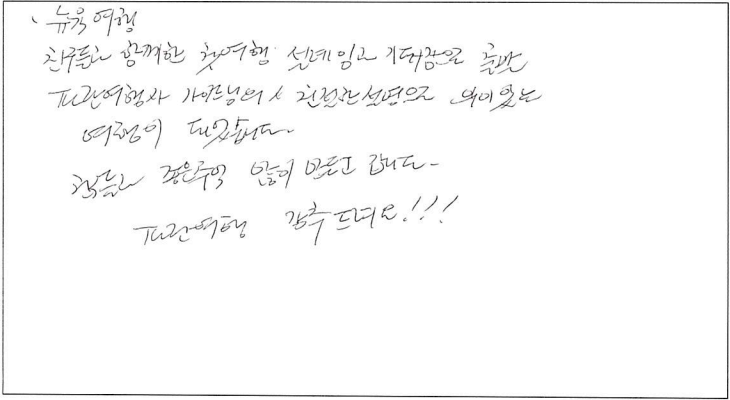 뉴욕 여행
친구들과 함께한 첫여행 설레임과 기대감으로 출발
파란여행사 가이드님의 친절한 설명으로 의미있는
여행이 되었습니다.
친구들과 좋은추억 많이 만들고 갑니다.
파란여행 강추드려요!!!